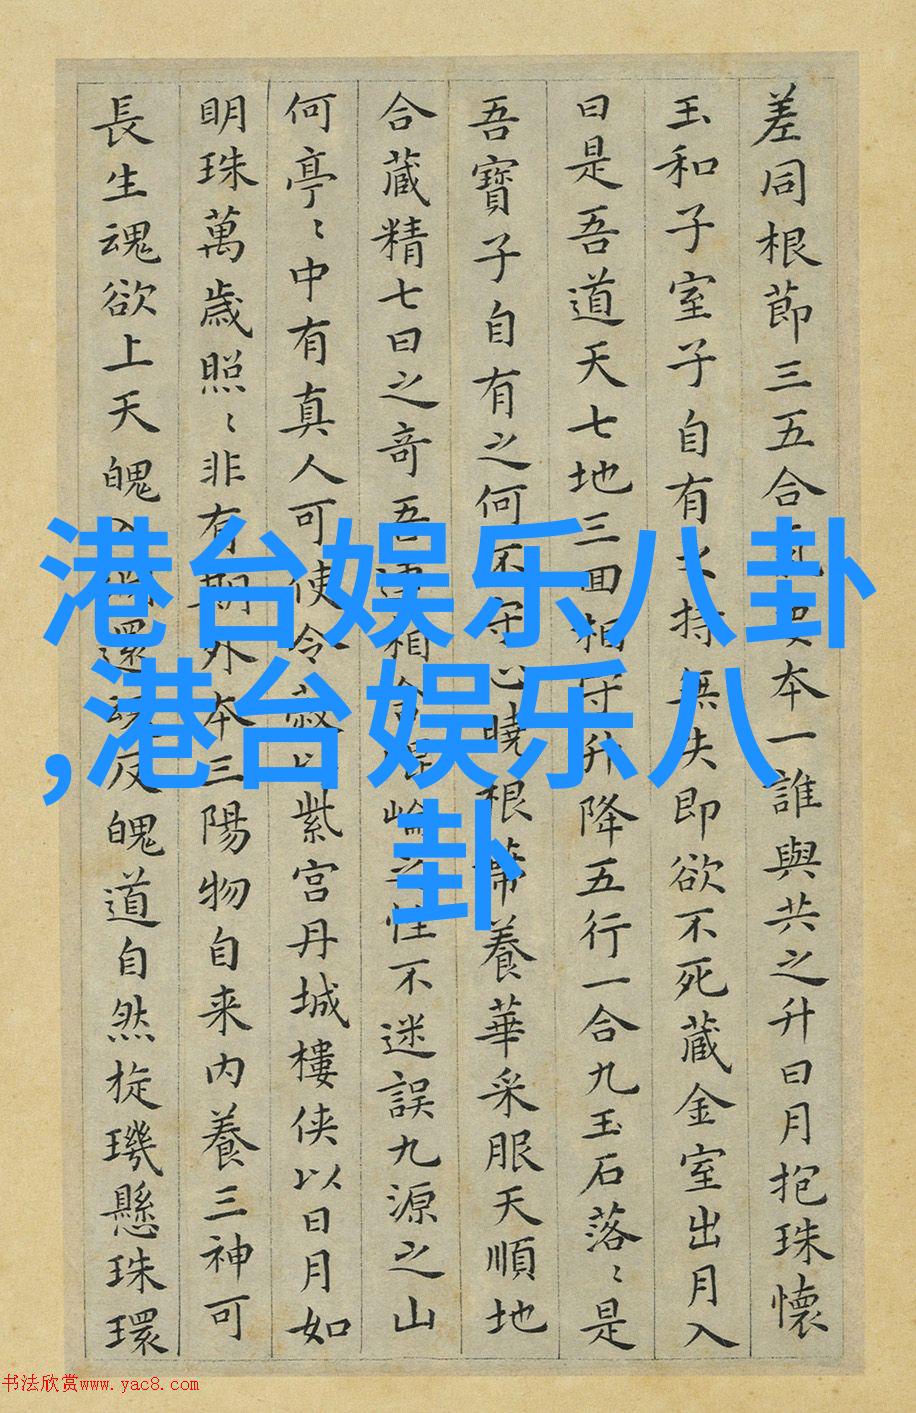 差同根節三五合本一誰與共之升日月抱珠懷
玉和子室子自有之持無失即欲不死藏金室出月入
日是吾道天七地三回相守升降五行一合九玉石落〻是
吾寶子自有之何不守心曉根蒂養華采服天順地
合藏精七日之奇吾相合崙之性不迷誤九源之山
何亭〻中有真人可使令以紫宮丹城樓俠以日月如
明珠萬歲照〻非有期外本三陽物自来内養三神可
長生魂欲上天魄還魂反魄道自然旋璣懸珠環
港台娱乐八卦
,港台娱乐八
卦
书法欣赏www.yac8.com